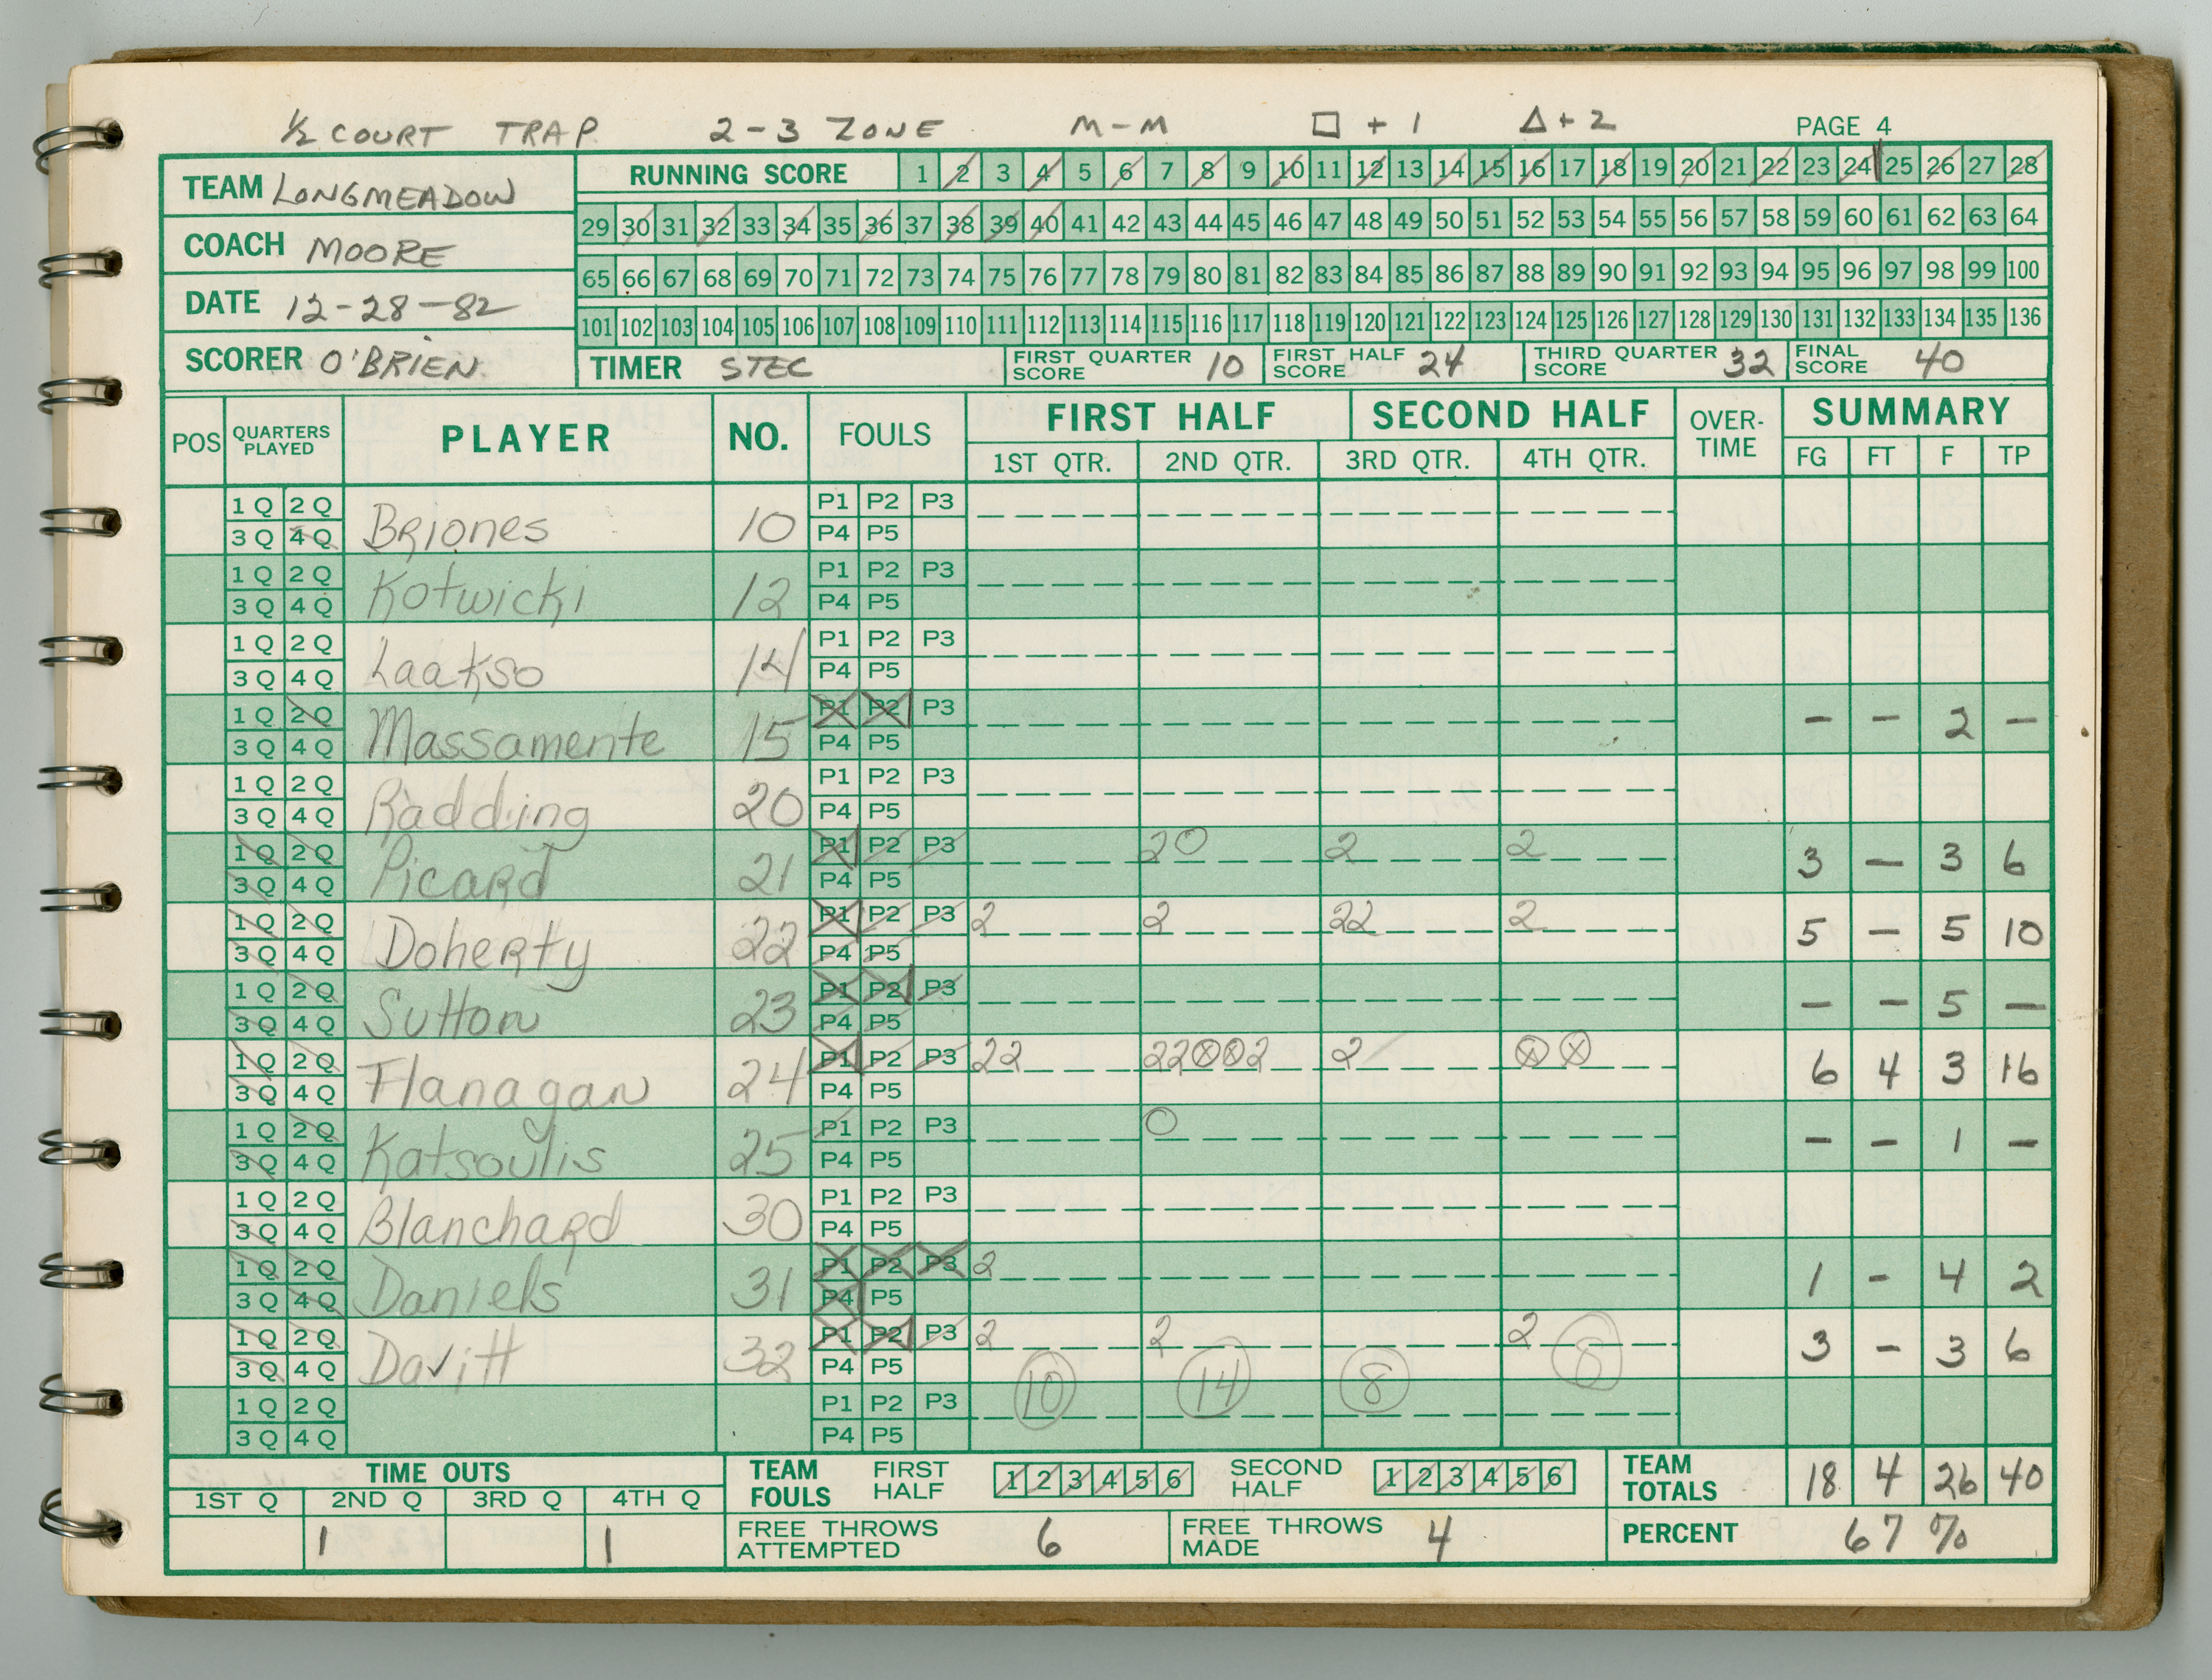 ½ COURT TRAP. 2-3 ZONE M-M □ + 1 △ + 2 PAGE 4
TEAM LONGMEADOW
COACH MOORE
DATE 12-28-82
SCORER O'BRIEN.
RUNNING SCORE 1 2 3 4 5 6 7 8 9 10 11 12 13 14 15 16 17 18 19 20 21 22 23 24 25 26 27 28
29 30 31 32 33 34 35 36 37 38 39 40 41 42 43 44 45 46 47 48 49 50 51 52 53 54 55 56 57 58 59 60 61 62 63 64
65 66 67 68 69 70 71 72 73 74 75 76 77 78 79 80 81 82 83 84 85 86 87 88 89 90 91 92 93 94 95 96 97 98 99 100
101 102 103 104 105 106 107 108 109 110 111 112 113 114 115 116 117 118 119 120 121 122 123 124 125 126 127 128 129 130 131 132 133 134 135 136
TIMER STEC FIRST QUARTER SCORE 10 FIRST HALF SCORE 24 THIRD QUARTER SCORE 32 FINAL SCORE 40
POS QUARTERS PLAYED PLAYER NO. FOULS FIRST HALF SECOND HALF OVER-TIME SUMMARY
1ST QTR. 2ND QTR. 3RD QTR. 4TH QTR. FG FT F TP
1Q 2Q P1 P2 P3
3Q 4Q Briones 10 P4 P5
1Q 2Q P1 P2 P3
3Q 4Q Kotwicki 12 P4 P5
1Q 2Q P1 P2 P3
3Q 4Q Laakso 14 P4 P5
1Q 2Q P1 P2 P3 - - 2 -
3Q 4Q Massamente 15 P4 P5
1Q 2Q P1 P2 P3
3Q 4Q Radding 20 P4 P5
1Q 2Q P1 P2 P3 2O 2 2 3 - 3 6
3Q 4Q Picard 21 P4 P5
1Q 2Q P1 P2 P3 2 2 22 2 5 - 5 10
3Q 4Q Doherty 22 P4 P5
1Q 2Q P1 P2 P3 - - 5 -
3Q 4Q Sutton 23 P4 P5
1Q 2Q P1 P2 P3 22 22ⓧⓧ2 2 ⓧ ⓧ 6 4 3 16
3Q 4Q Flanagan 24 P4 P5
1Q 2Q P1 P2 P3 O - - 1 -
3Q 4Q Katsoulis 25 P4 P5
1Q 2Q P1 P2 P3
3Q 4Q Blanchard 30 P4 P5
1Q 2Q P1 P2 P3 2 1 - 4 2
3Q 4Q Daniels 31 P4 P5
1Q 2Q P1 P2 P3 2 2 2 3 - 3 6
3Q 4Q Davitt 32 P4 P5
1Q 2Q P1 P2 P3 10 14 8 8
3Q 4Q P4 P5
TIME OUTS TEAM FOULS FIRST HALF 1 2 3 4 5 6 SECOND HALF 1 2 3 4 5 6 TEAM TOTALS 18 4 26 40
1ST Q 2ND Q 3RD Q 4TH Q
1 1 FREE THROWS ATTEMPTED 6 FREE THROWS MADE 4 PERCENT 67 %